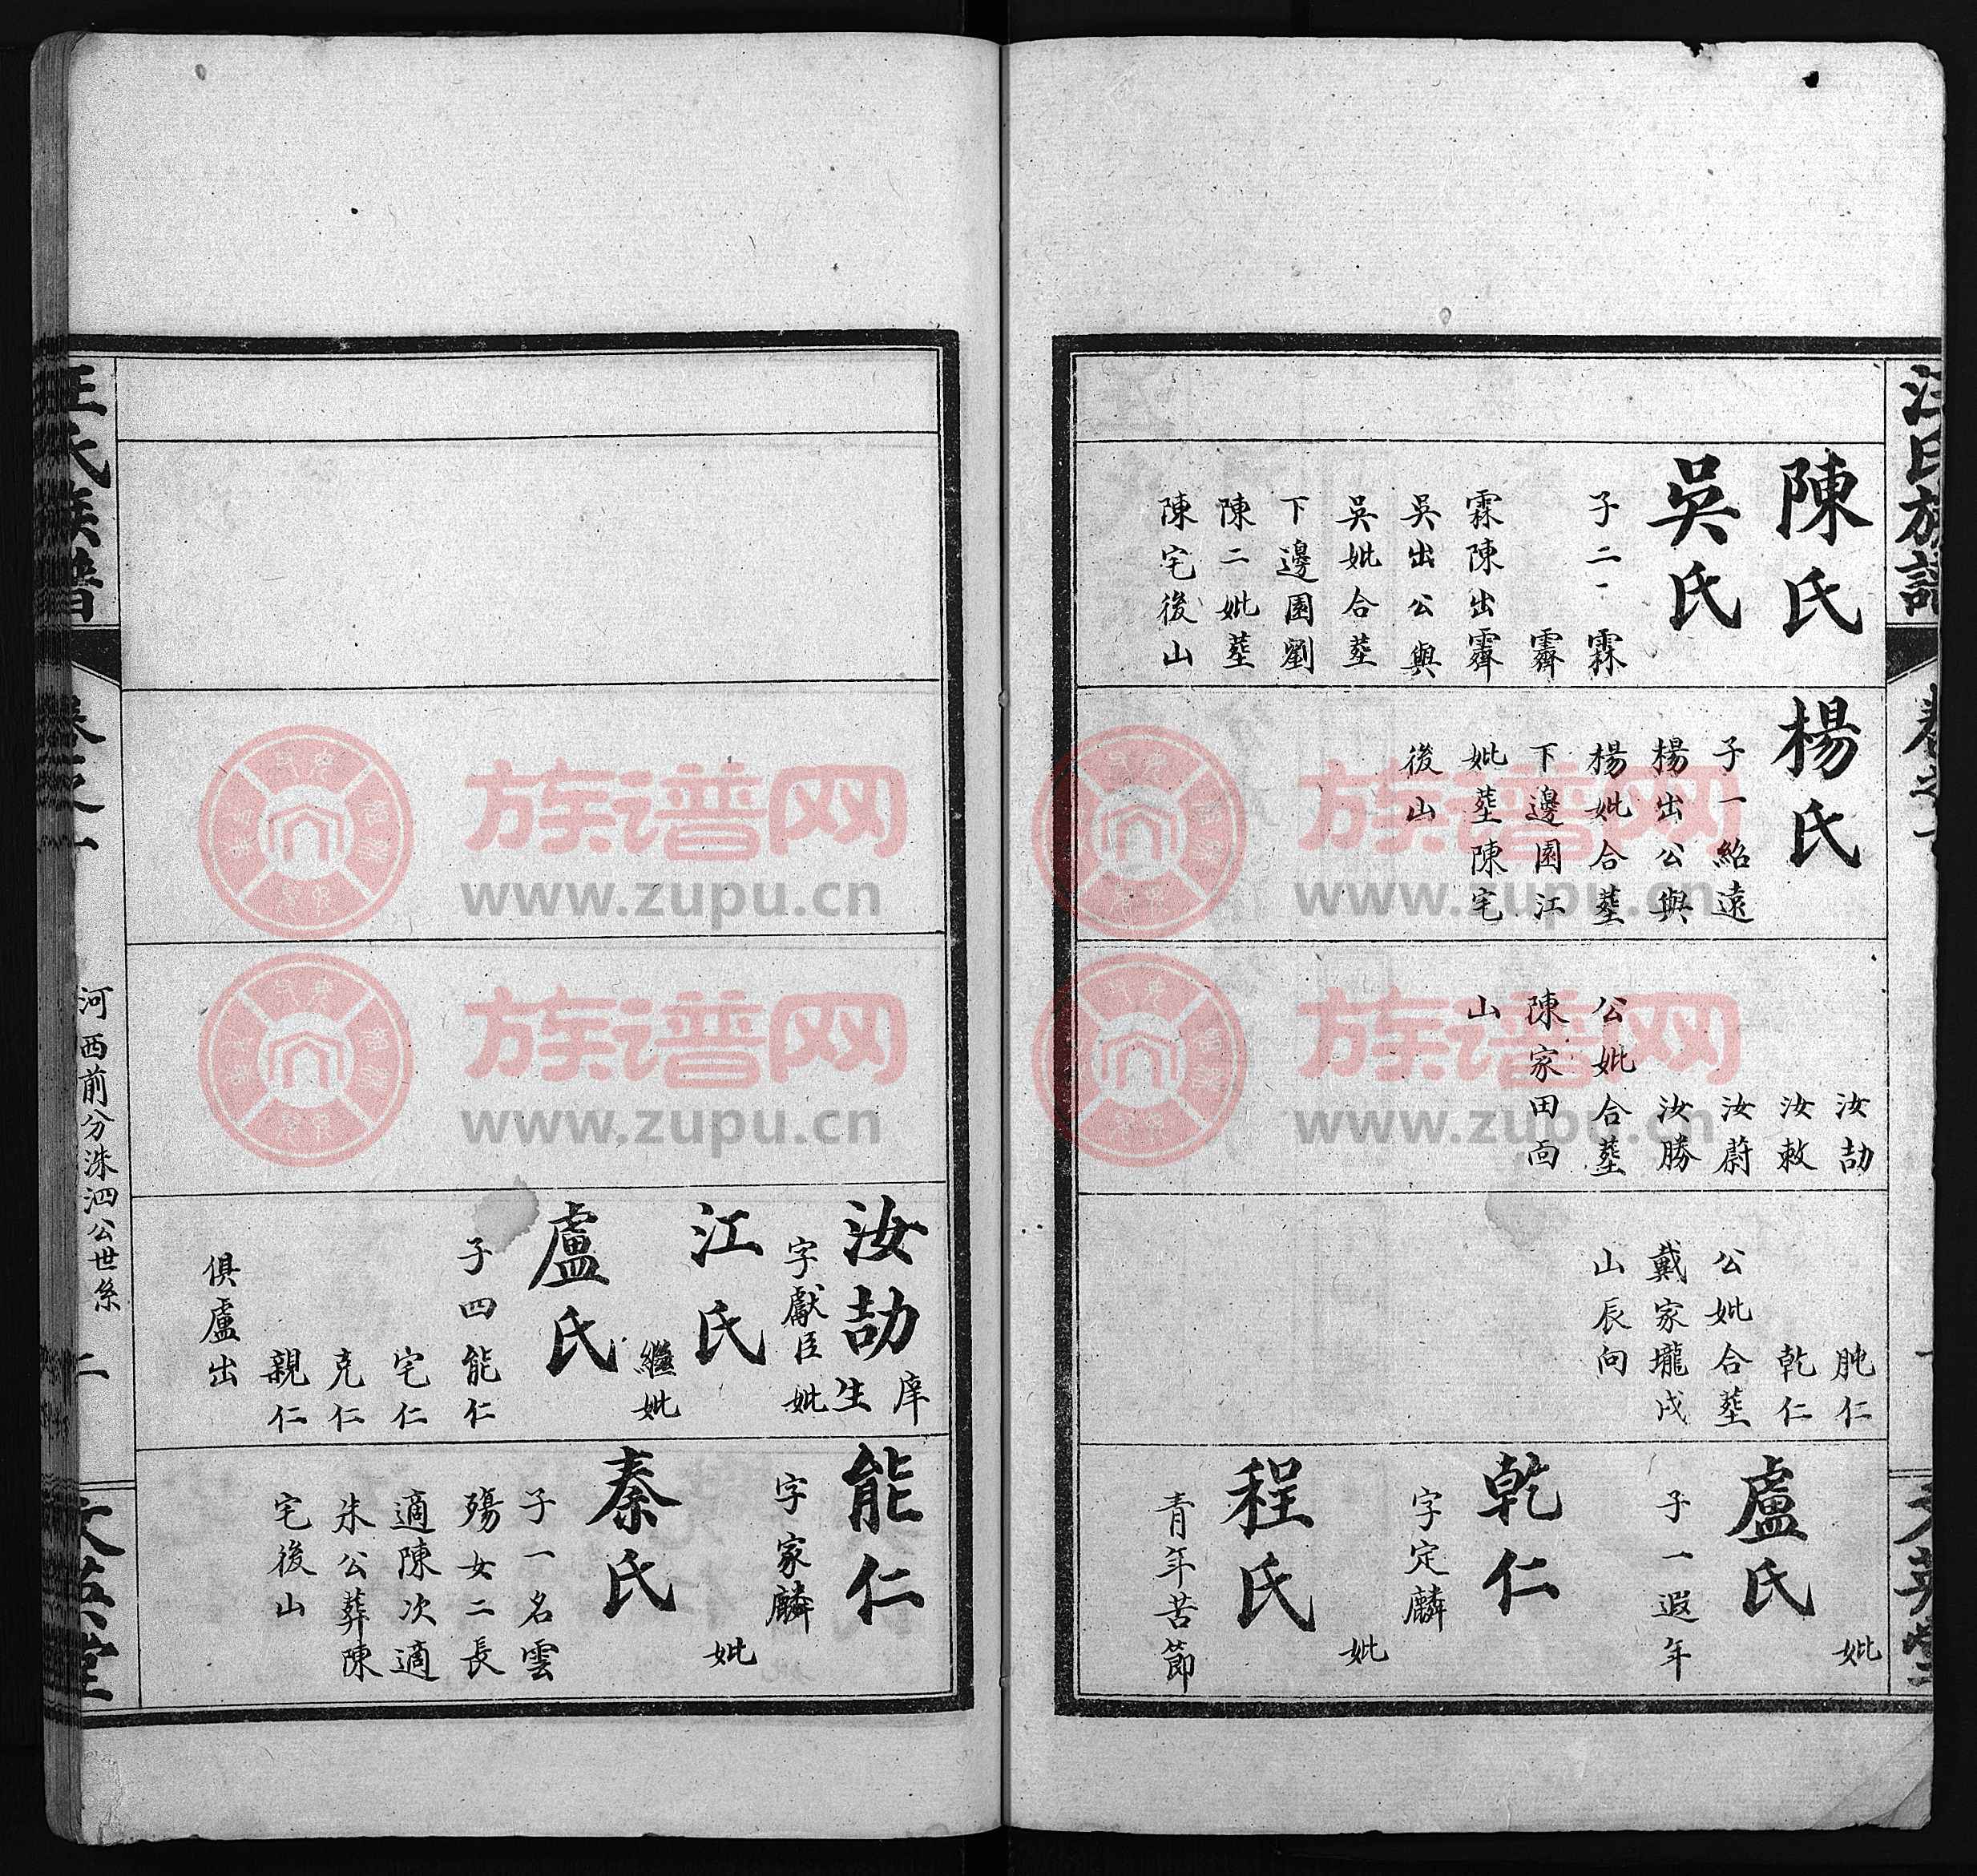 汪氏族譜
卷之一
一
文英堂
陳氏
吳氏
子二 霖
霽
霖陳出霽
吳出公與
吳妣合塟
下邊園劉
陳二妣塟
陳宅後山
楊氏
子一紹遠
楊出公與
楊妣合塟
下邊園江
妣塟陳宅
後山
汝劼
汝敕
汝蔚
汝勝
公妣合塟
陳家田向
山
肫仁
乾仁
公妣合塟
戴家壠戌
山辰向
妣
盧氏
子一遐年
乾仁
字定麟
妣
程氏
青年苦節
汝劼庠
生
字獻臣妣
江氏
繼妣
盧氏
子四能仁
宅仁
克仁
親仁
俱盧出
能仁
字家麟
妣
秦氏
子一名雲
殤女二長
適陳次適
朱公葬陳
宅後山
汪氏族譜
卷之一
河西前分洙泗公世系
二
文英堂
族谱网
www.zupu.cn
族谱网
www.zupu.cn
族谱网
www.zupu.cn
族谱网
www.zupu.cn